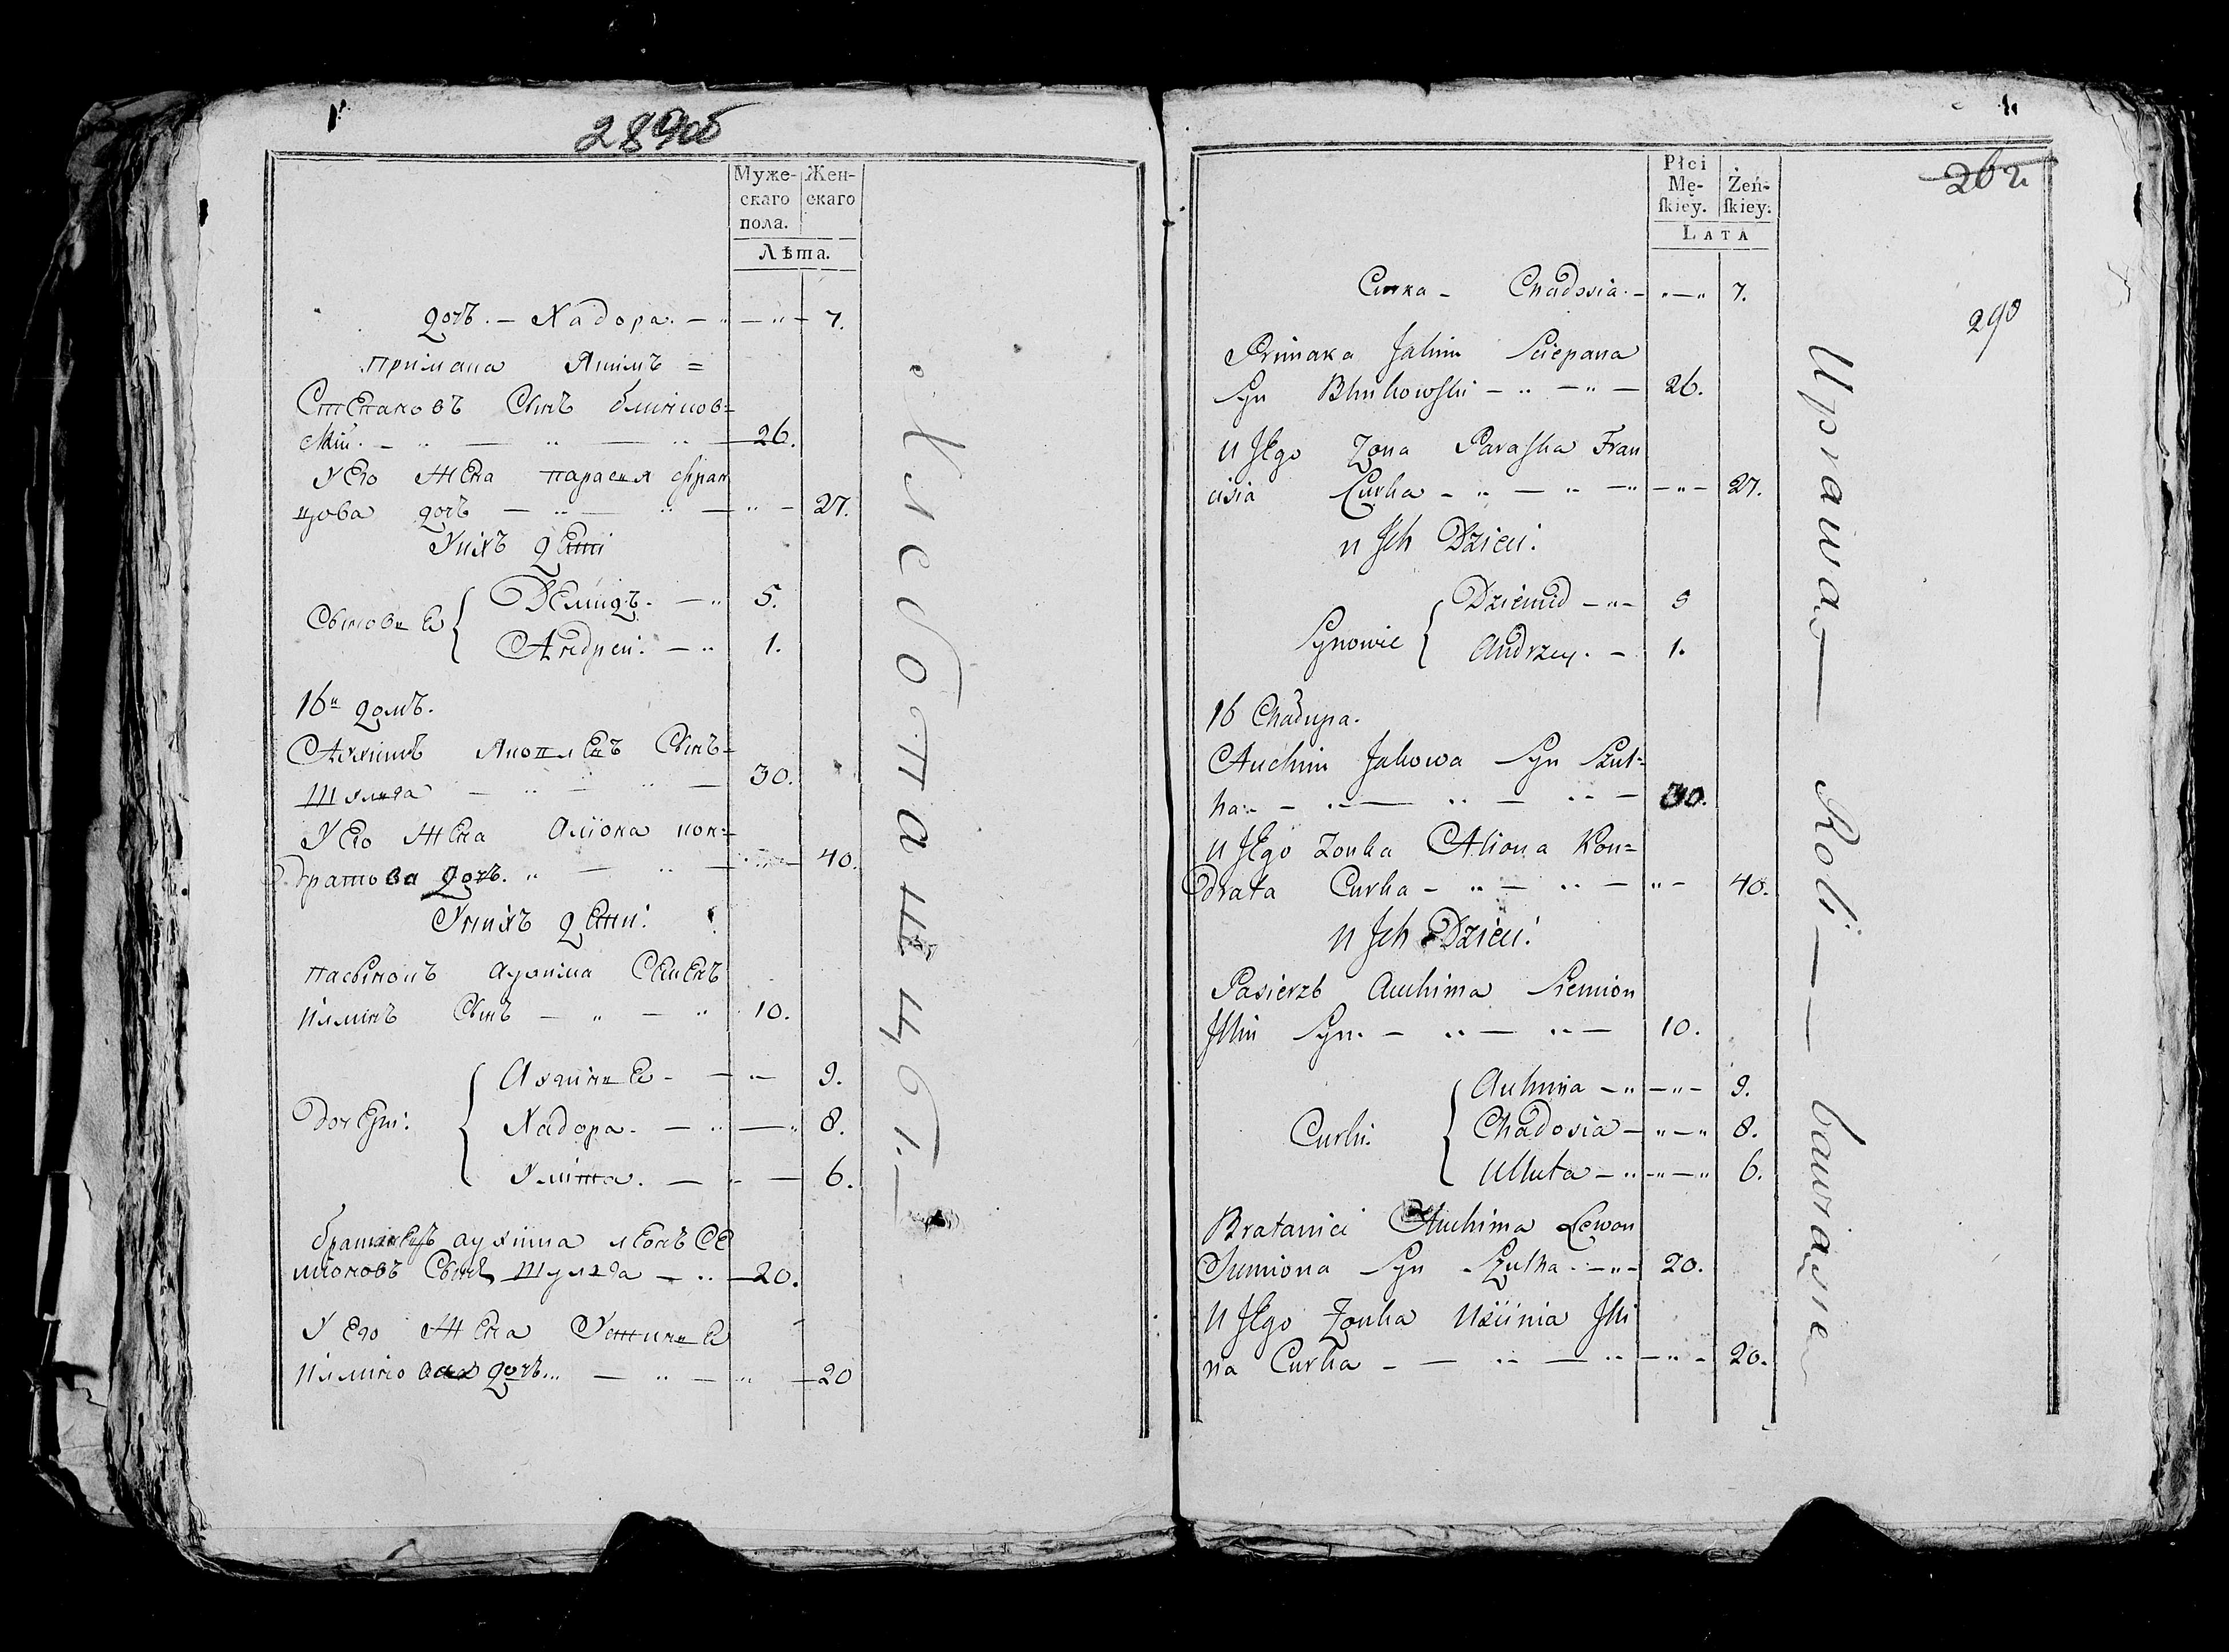 289об
Муже- Жен-
скаго скаго
пола.
Лѣта.
дочь. — Хадора. — 7.
Примака Якимъ =
Степановъ Сынъ блинков=
скiй. — 26.
У Его Жена Параска фран
цова дочь — 27.
У нихъ дети
Сыновье { Демидъ. — 5.
Андреи. — 1.
16й домъ.
Аухимъ Яковлевъ Сынъ=
Шулга — 30.
У Его Жена Алiона кон=
дратова дочь. — 40.
У нихъ дети:
пасынокъ аухима Семенъ
Илинъ Сынъ — 10.
Дочери: { Аухимье — 9.
Хадора. — 8.
Улита. — 6.
братанецъ аухима леонъ Се
мионовъ Сынъ Шулга — 20.
У его Жена Устинье
Илинова дочь... — 20
Хлебопашцы
262
290
Płci
Mę- Żeń-
skiey. skiey.
LATA
Curka — Chadosia. — 7.
Primaka Jakim Sciepana
Syn Blinkowski — 26.
u Jego Zona Paraska Fran
cisia Curka — 27.
u Jch Dzieci:
Synowie { Dziemid — 5
Andrzey. — 1.
16 Chałupa.
Auchim Jakowa Syn Szul=
ha. — 30.
u Jego Zonka Aliona Kon=
drata Curka — 40.
u Jch Dzieci:
Pasierzb Auchima Siemion
Jllin Syn. — 10.
Curki: { Auhinia — 9.
Chadosia — 8.
Ulluta — 6.
Bratanici Auchima Lewon
Siemiona Syn Szulha — 20.
U Jego Zonka Uscinia Jlli
na Curka — 20.
Uprawa — Roli —